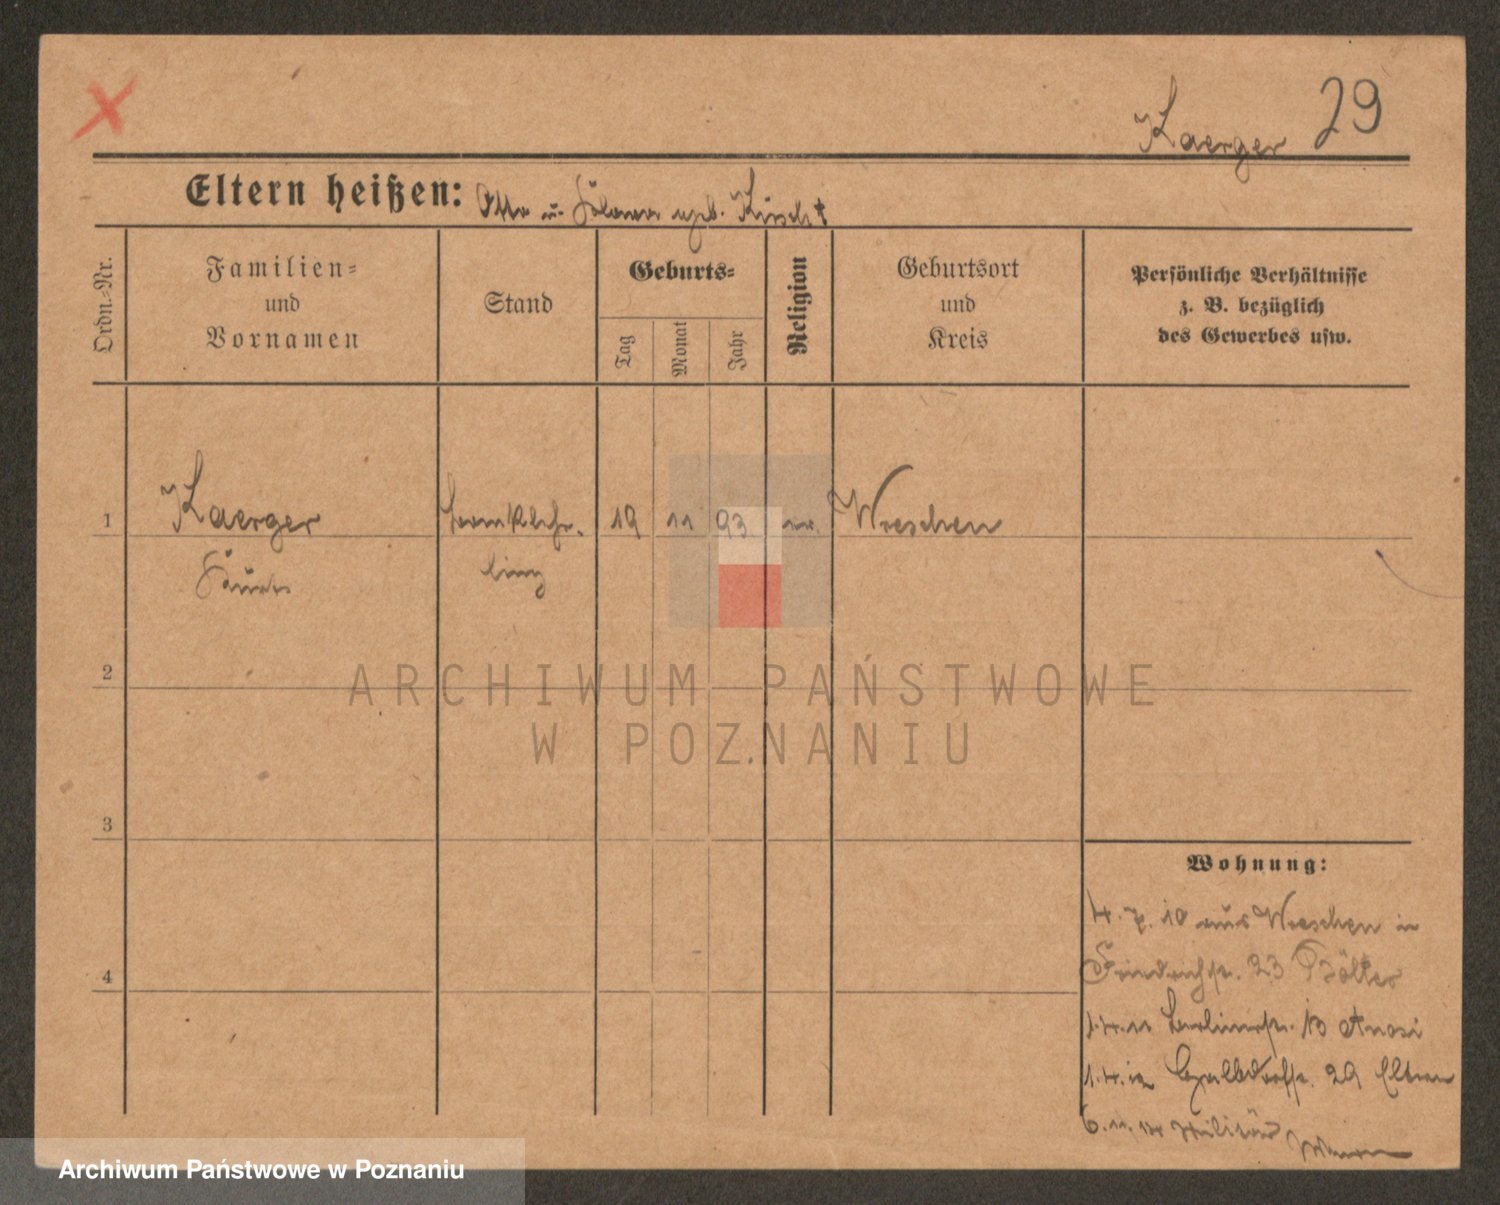 Kaerger 29
Eltern heißen: Otto u. geb.
Ordn.-Nr.
Familien-
und
Vornamen
Stand
Geburts-
Tag
Monat
Jahr
Religion
Geburtsort
und
Kreis
Persönliche Verhältnisse
z. B. bezüglich
des Gewerbes usw.
1 Kaerger 19 11 93 Wreschen
ling
2
ARCHIWUM PAŃSTWOWE
W POZNANIU
3
Wohnung:
4. 7. 10 aus Wreschen in
Friedrichstr. 23
4
1.4.11 Berlinerstr. 13
1.4.12 29 Eltern
6.11.14 Militär
Archiwum Państwowe w Poznaniu